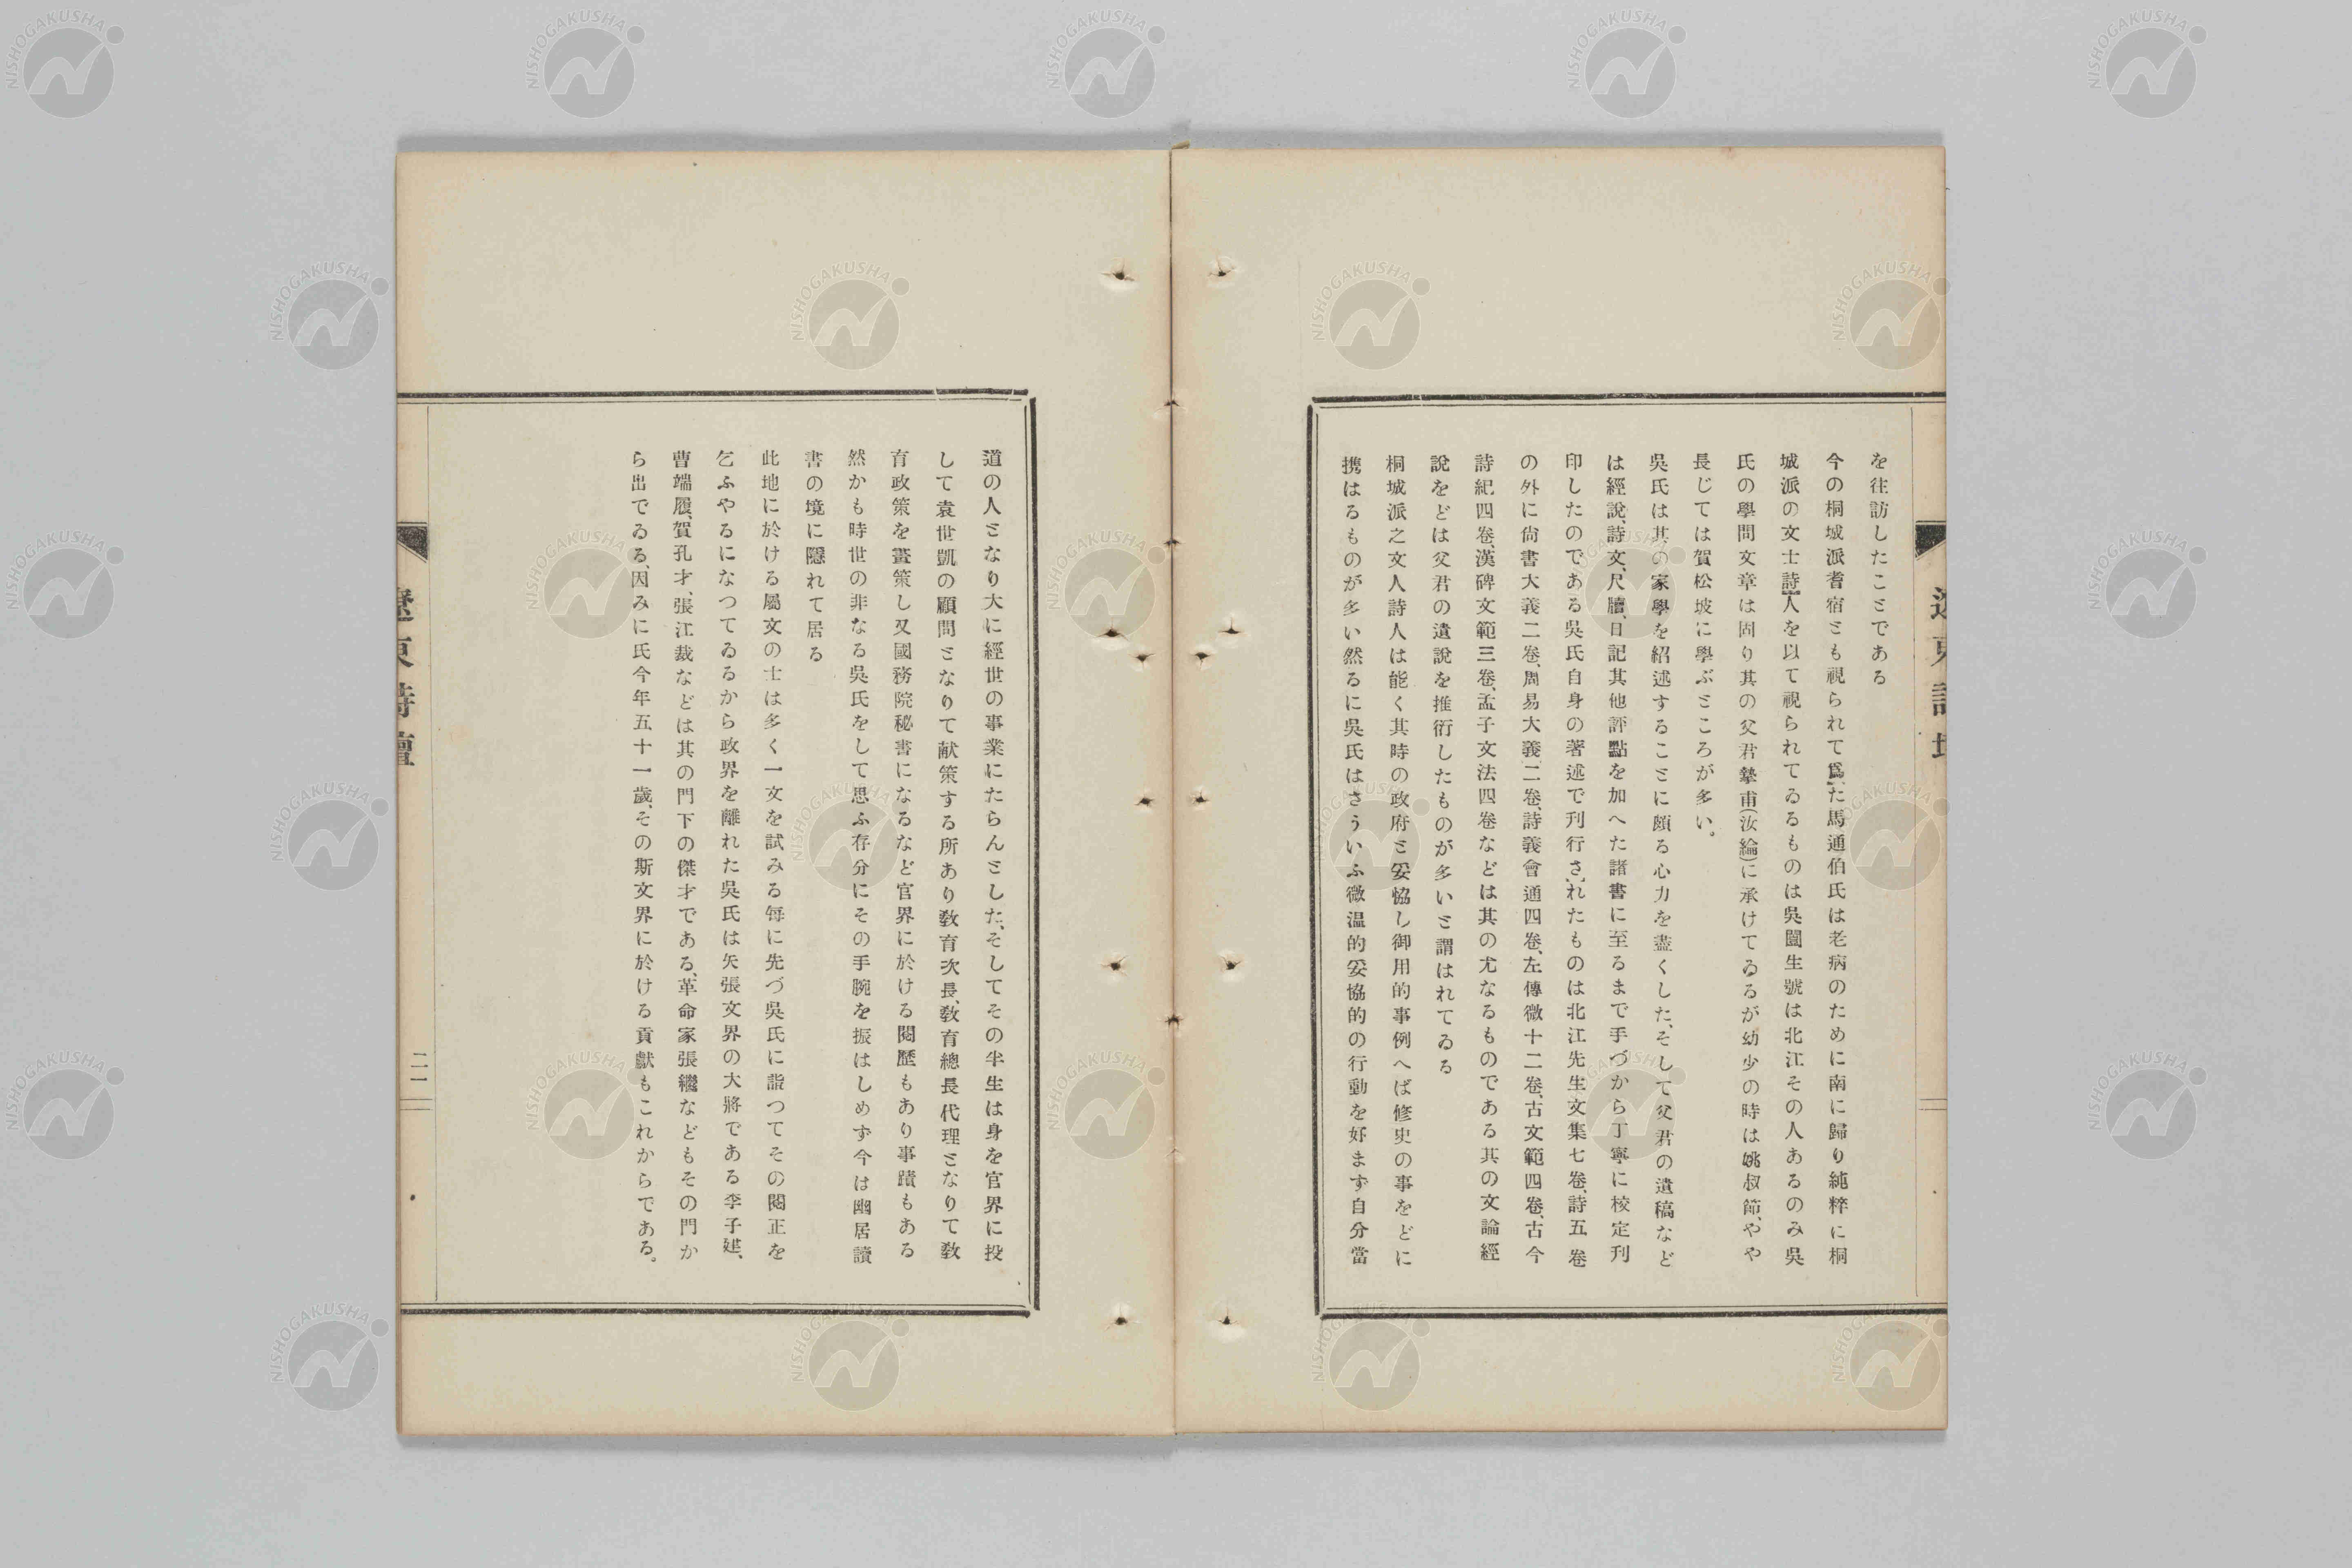 を往訪したことである
今の桐城派耆宿とも視られて爲た馬通伯氏は老病のために南に歸り純粹に桐
城派の文士詩人を以て視られてゐるものは吳闓生號は北江その人あるのみ吳
氏の學問文章は固り其の父君摯甫(汝綸)に承けてゐるが幼少の時は姚叔節、やや
長じては賀松坡に學ぶところが多い。
吳氏は其の家學を紹述することに頗る心力を盡くした、そして父君の遺稿など
は經說、詩文、尺牘、日記其他評點を加へた諸書に至るまで手づから丁寧に校定刊
印したのである吳氏自身の著述で刊行されたものは北江先生文集七卷、詩五卷
の外に尙書大義二卷、周易大義二卷、詩義會通四卷、左傳微十二卷、古文範四卷、古今
詩紀四卷、漢碑文範三卷、孟子文法四卷などは其の尤なるものである其の文論經
說をどは父君の遺說を推衍したものが多いと謂はれてゐる
桐城派之文人詩人は能く其時の政府と妥協し御用的事例へば修史の事をどに
携はるものが多い然るに吳氏はさういふ微温的妥協的の行動を好まず自分當
道の人となり大に經世の事業にたらんとした、そしてその半生は身を官界に投
して袁世凱の顧問となりて献策する所あり敎育次長、敎育總長代理となりて敎
育政策を畫策し又國務院秘書になるなど官界に於ける閱歷もあり事蹟もある
然かも時世の非なる吳氏をして思ふ存分にその手腕を振はしめず今は幽居讀
書の境に隱れて居る
此地に於ける屬文の士は多く一文を試みる每に先づ吳氏に詣つてその閱正を
乞ふやるになつてゐるから政界を離れた吳氏は矢張文界の大將である李子建、
曹端履、賀孔才、張江裁などは其の門下の傑才である、革命家張繼などもその門か
ら出でゐる、因みに氏今年五十一歲、その斯文界に於ける貢獻もこれからである。
遼東詩壇
二一